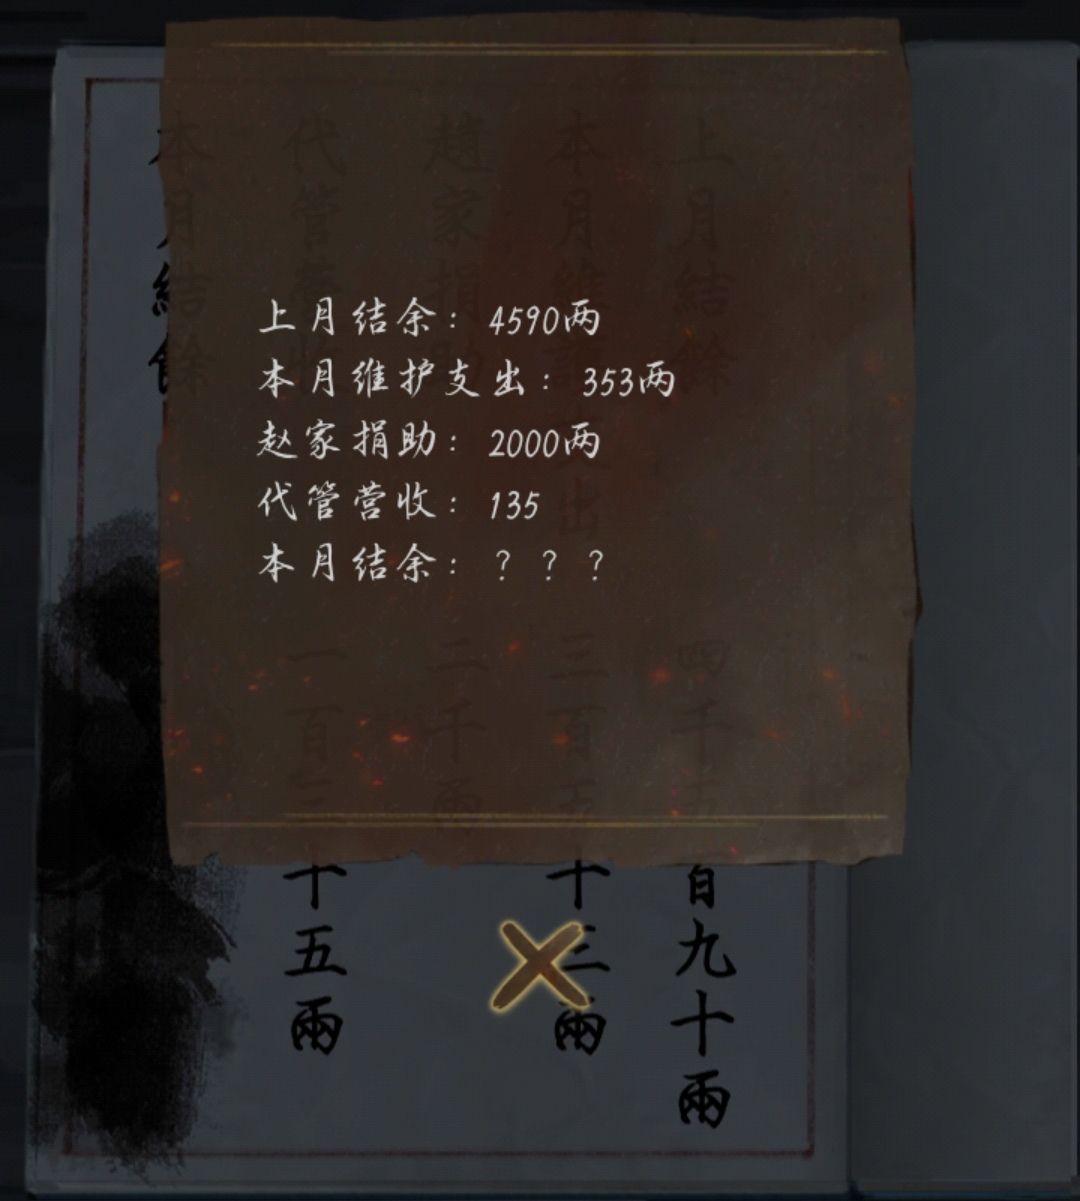 上月结余：4590两
本月维护支出：353两
赵家捐助：2000两
代管营收：135
本月结余：？？？
上月結餘 四千五百九十兩
本月維護支出 三百五十三兩
趙家捐助 二千兩
代管營收 一百三十五兩
本月結餘